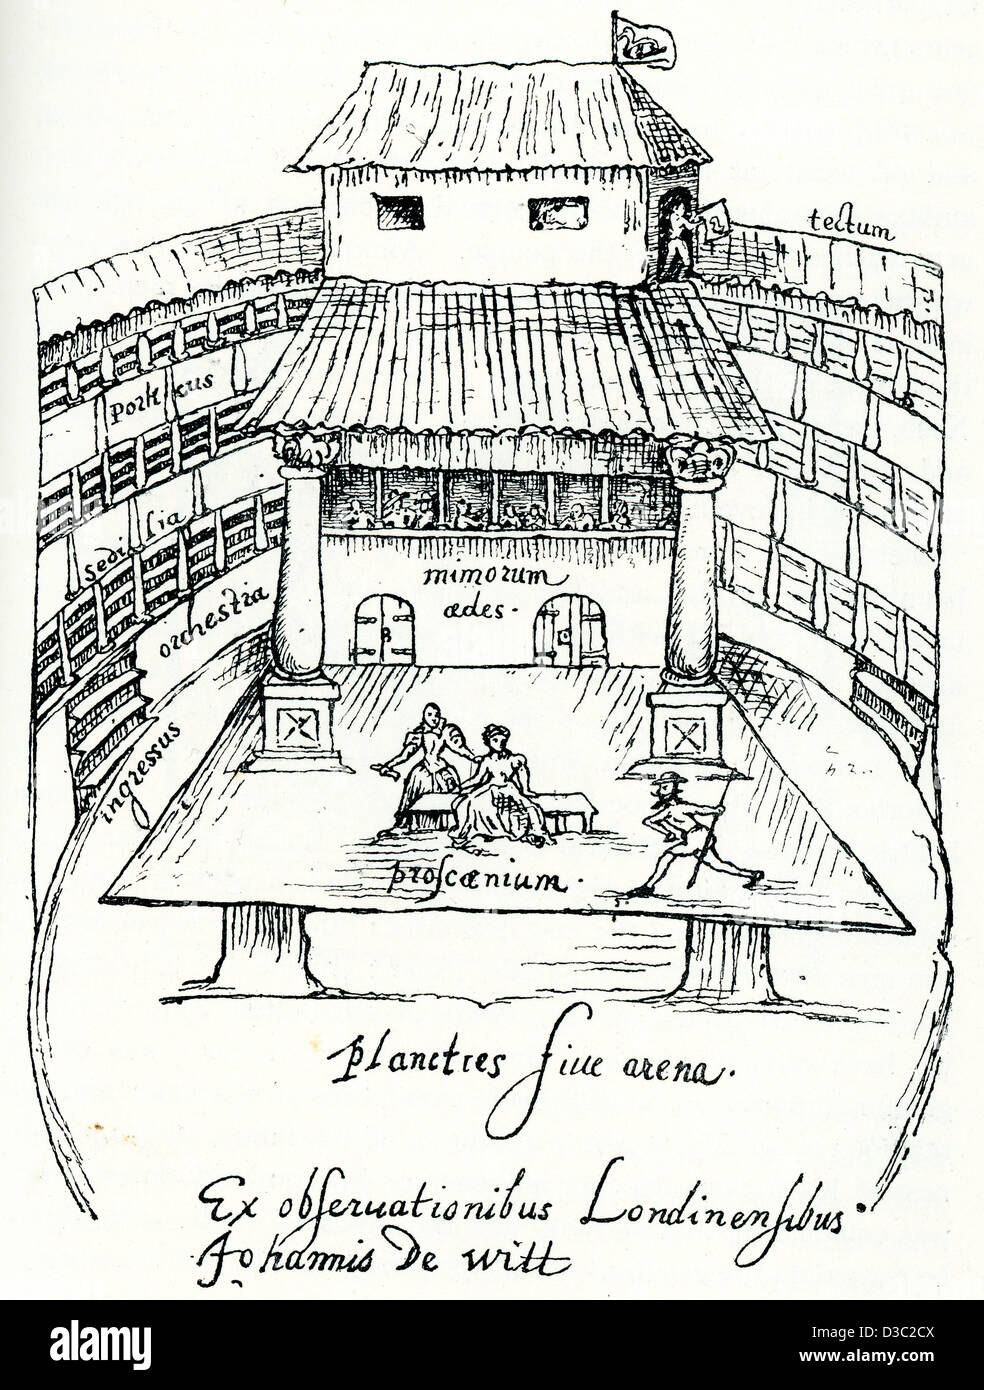 tectum
porticus
sedilia
orchestra
ingressus
mimorum
ædes.
proſcænium.
planeties ſiue arena.
Ex obſeruationibus Londinenſibus
Johannis De Witt
alamy
Image ID: D3C2CX
www.alamy.com